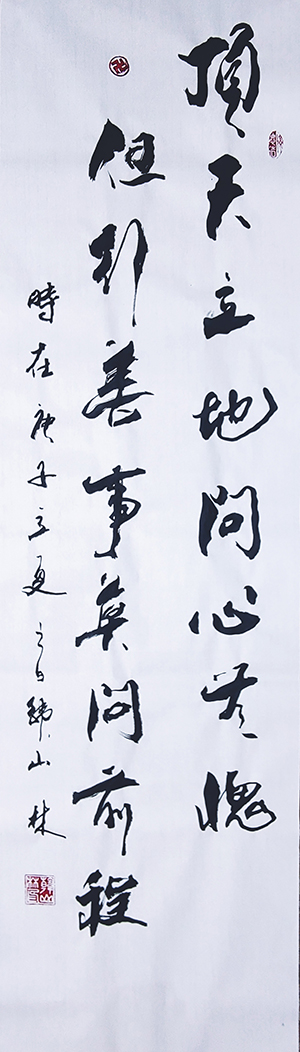 頂天立地問心無愧
但行善事莫問前程
時在庚子立夏之日韓山林